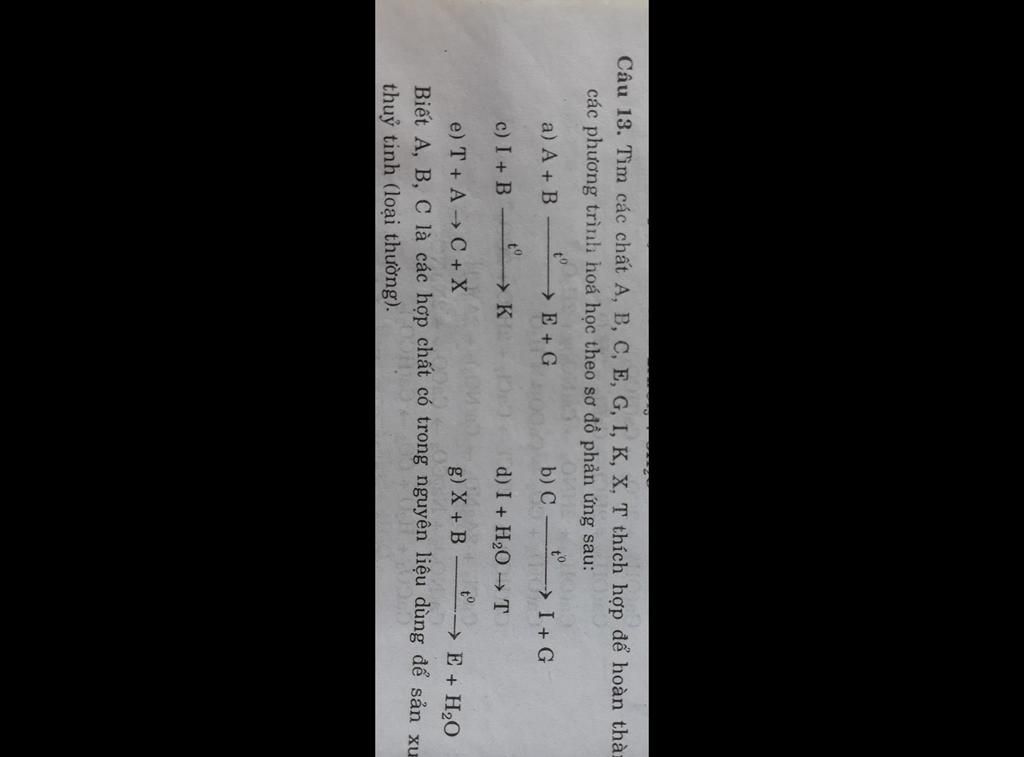 Câu 13. Tìm các chất A, B, C, E, G, I, K, X, T thích hợp để hoàn
các phương trình hoá học theo sơ đồ phản ứng sau:
a) A + B —t⁰→ E + G b) C —t⁰→ I + G
c) I + B —t⁰→ K d) I + H₂O → T
e) T + A → C + X g) X + B —t⁰→ E + H₂O
Biết A, B, C là các hợp chất có trong nguyên liệu dùng để sản
thuỷ tinh (loại thường).